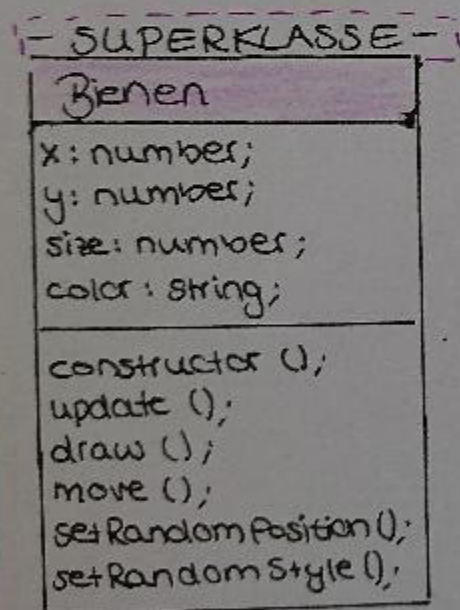 - SUPERKLASSE -
Bienen
x: number;
y: number;
size: number;
color: string;
constructor ();
update ();
draw ();
move ();
setRandomPosition();
setRandomStyle();